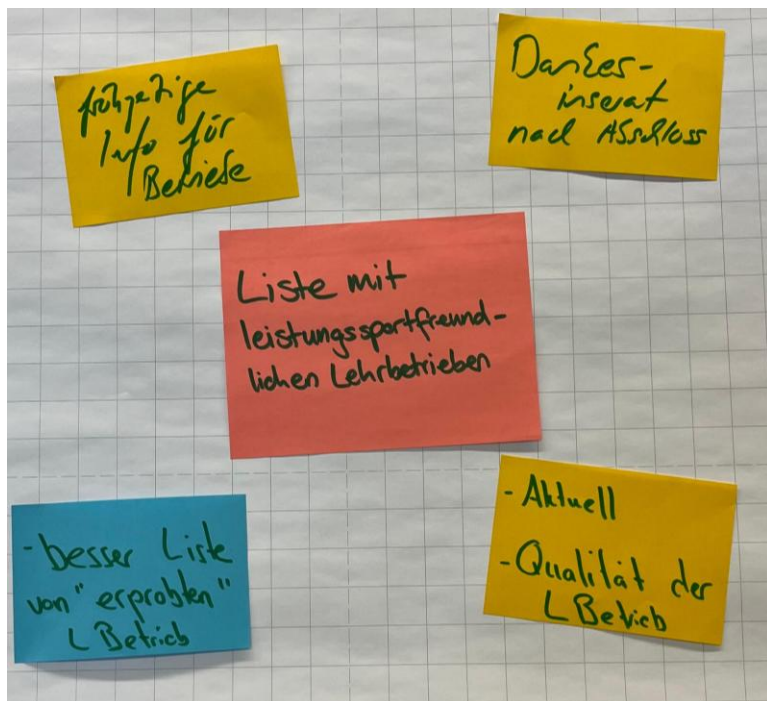 frühzeitige
Info für
Betriebe
Dankes-
inserat
nach Abschluss
Liste mit
leistungssportfreund-
lichen Lehrbetrieben
- besser Liste
von "erprobten"
L Betrieb
- Aktuell
- Qualität der
L Betrieb